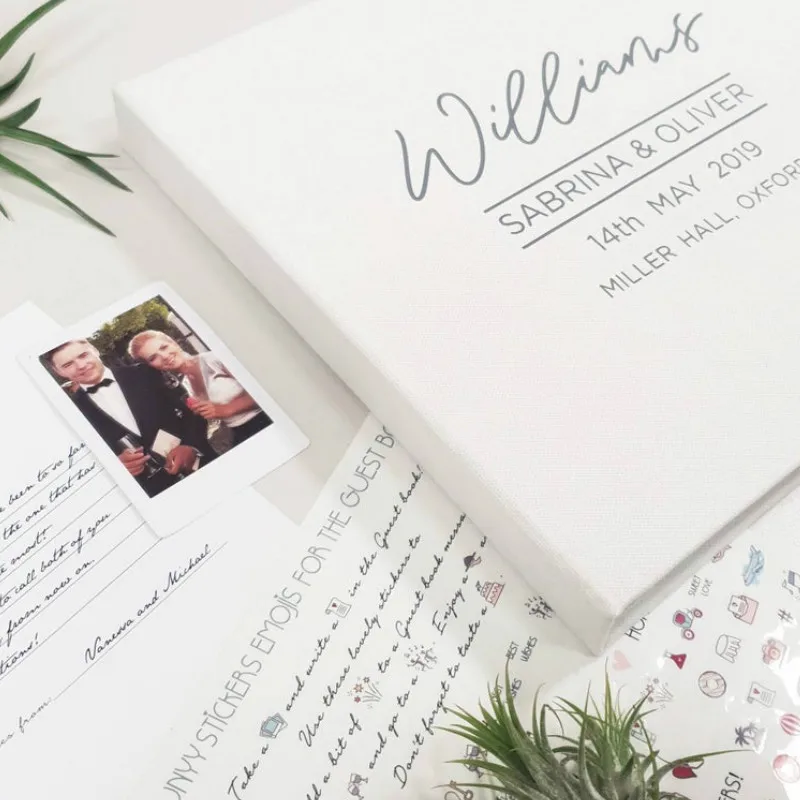 Williams
SABRINA & OLIVER
14th MAY 2019
MILLER HALL, OXFORD
been to so far
the one that has
most!
to call both of you
from now on.
Vanessa and Michael
from:
STICKERS EMOJIS FOR THE GUEST
Take a and write a in the Guest book!
Use these lovely stickers to
a bit of to a Guest book
and go to a Enjoy a
Don't forget to taste a
BEST WISHES
SWEET LOVE